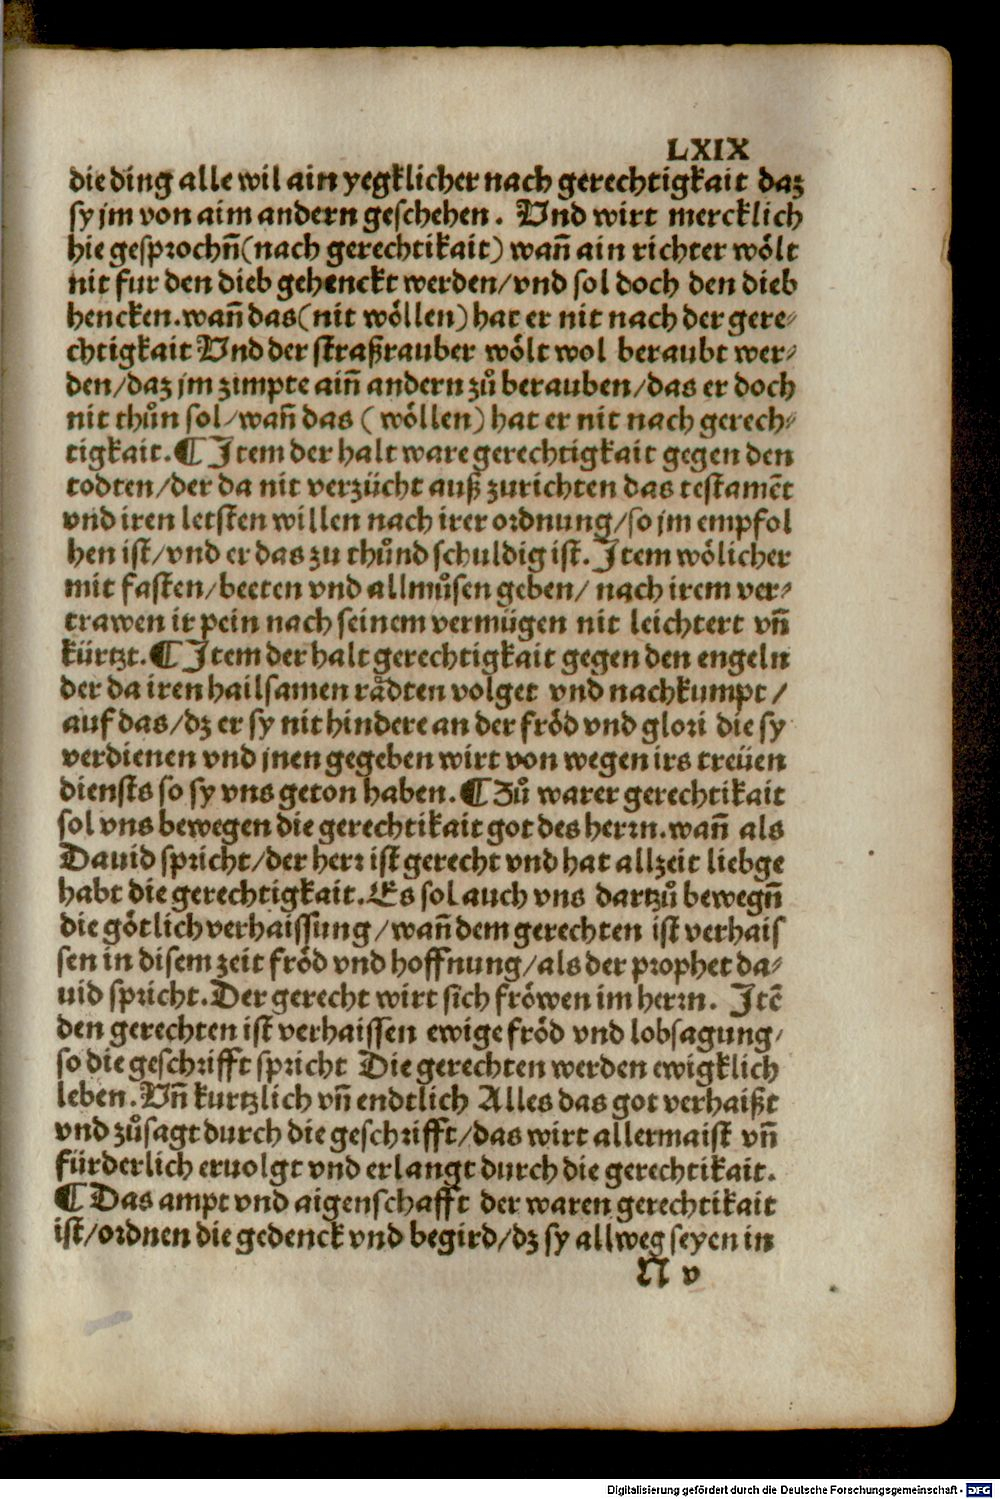 LXIX
die ding alle wil ain yegklicher nach gerechtigkait daz
sy jm von aim andern geschehen. Vnd wirt mercklich
hie gesprochñ(nach gerechtikait) wañ ain richter wölt
nit fur den dieb gehenckt werden/vnd sol doch den dieb
hencken.wañ das(nit wöllen)hat er nit nach der gere⸗
chtigkait Vnd der straßrauber wölt wol beraubt wer⸗
den/daz jm zimpte aiñ andern zů berauben/das er doch
nit thůn sol/wañ das (wöllen) hat er nit nach gerech⸗
tigkait.¶Item der halt ware gerechtigkait gegen den
todten/der da nit verzücht auß zurichten das testamēt
vnd iren letsten willen nach irer ordnung/so jm empfol
hen ist/vnd er das zu thůnd schuldig ist.Item wölicher
mit fasten/beeten vnd allmůsen geben/ nach irem ver⸗
trawen ir pein nach seinem vermügen nit leichtert vñ
kürtzt.¶Item der halt gerechtigkait gegen den engeln
der da iren hailsamen rådten volget vnd nachkumpt/
auf das/dz er sy nit hindere an der fröd vnd glori die sy
verdienen vnd jnen gegeben wirt von wegen irs treüen
diensts so sy vns geton haben.¶Zů warer gerechtikait
sol vns bewegen die gerechtikait got des herrn.wañ als
Dauid spricht/der herr ist gerecht vnd hat allzeit liebge
habt die gerechtigkait.Es sol auch vns dartzů bewegñ
die götlich verhaissung/wañ dem gerechten ist verhais
sen in disem zeit fröd vnd hoffnung/als der prophet da⸗
uid spricht.Der gerecht wirt sich fröwen im herrn. Itē
den gerechten ist verhaissen ewige fröd vnd lobsagung/
so die geschrifft spricht Die gerechten werden ewigklich
leben.Vñ kurtzlich vñ endtlich Alles das got verhaißt
vnd zůsagt durch die geschrifft/das wirt allermaist vñ
fürderlich eruolgt vnd erlangt durch die gerechtikait.
¶Das ampt vnd aigenschafft der waren gerechtikait
ist/ordnen die gedenck vnd begird/dz sy allweg seyen in
N v
Digitalisierung gefördert durch die Deutsche Forschungsgemeinschaft - DFG